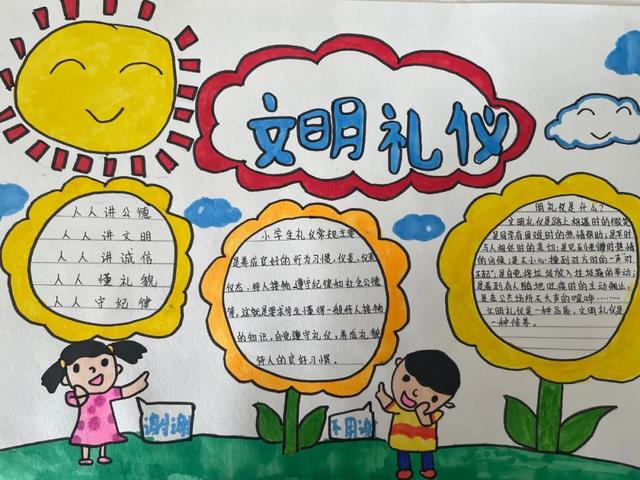 文明礼仪
人人讲公德
人人讲文明
人人讲诚信
人人懂礼貌
人人守纪律
小学生礼仪常规主要
是养成良好的行为习惯、仪表、仪容
仪态、待人接物遵守纪律如社会公德
等,这就是要求学生懂得一般待人接物
的知识,自觉遵守礼仪,养成礼貌
待人的良好习惯。
明礼仪是什么?
文明礼仪是路上相遇时的微笑
是同学有困难时的热情帮助,是平时
与人相处时的亲切,是见到老师时热情
的问候,是不小心撞到对方时的一声“对
不起”,是自觉将垃圾放入垃圾箱的举动,
是看到有人随地吐痰时的主动制止,
是在公共场所不大声的喧哗……
文明礼仪是一种品质,文明礼仪是
一种修养。
谢谢
不用谢